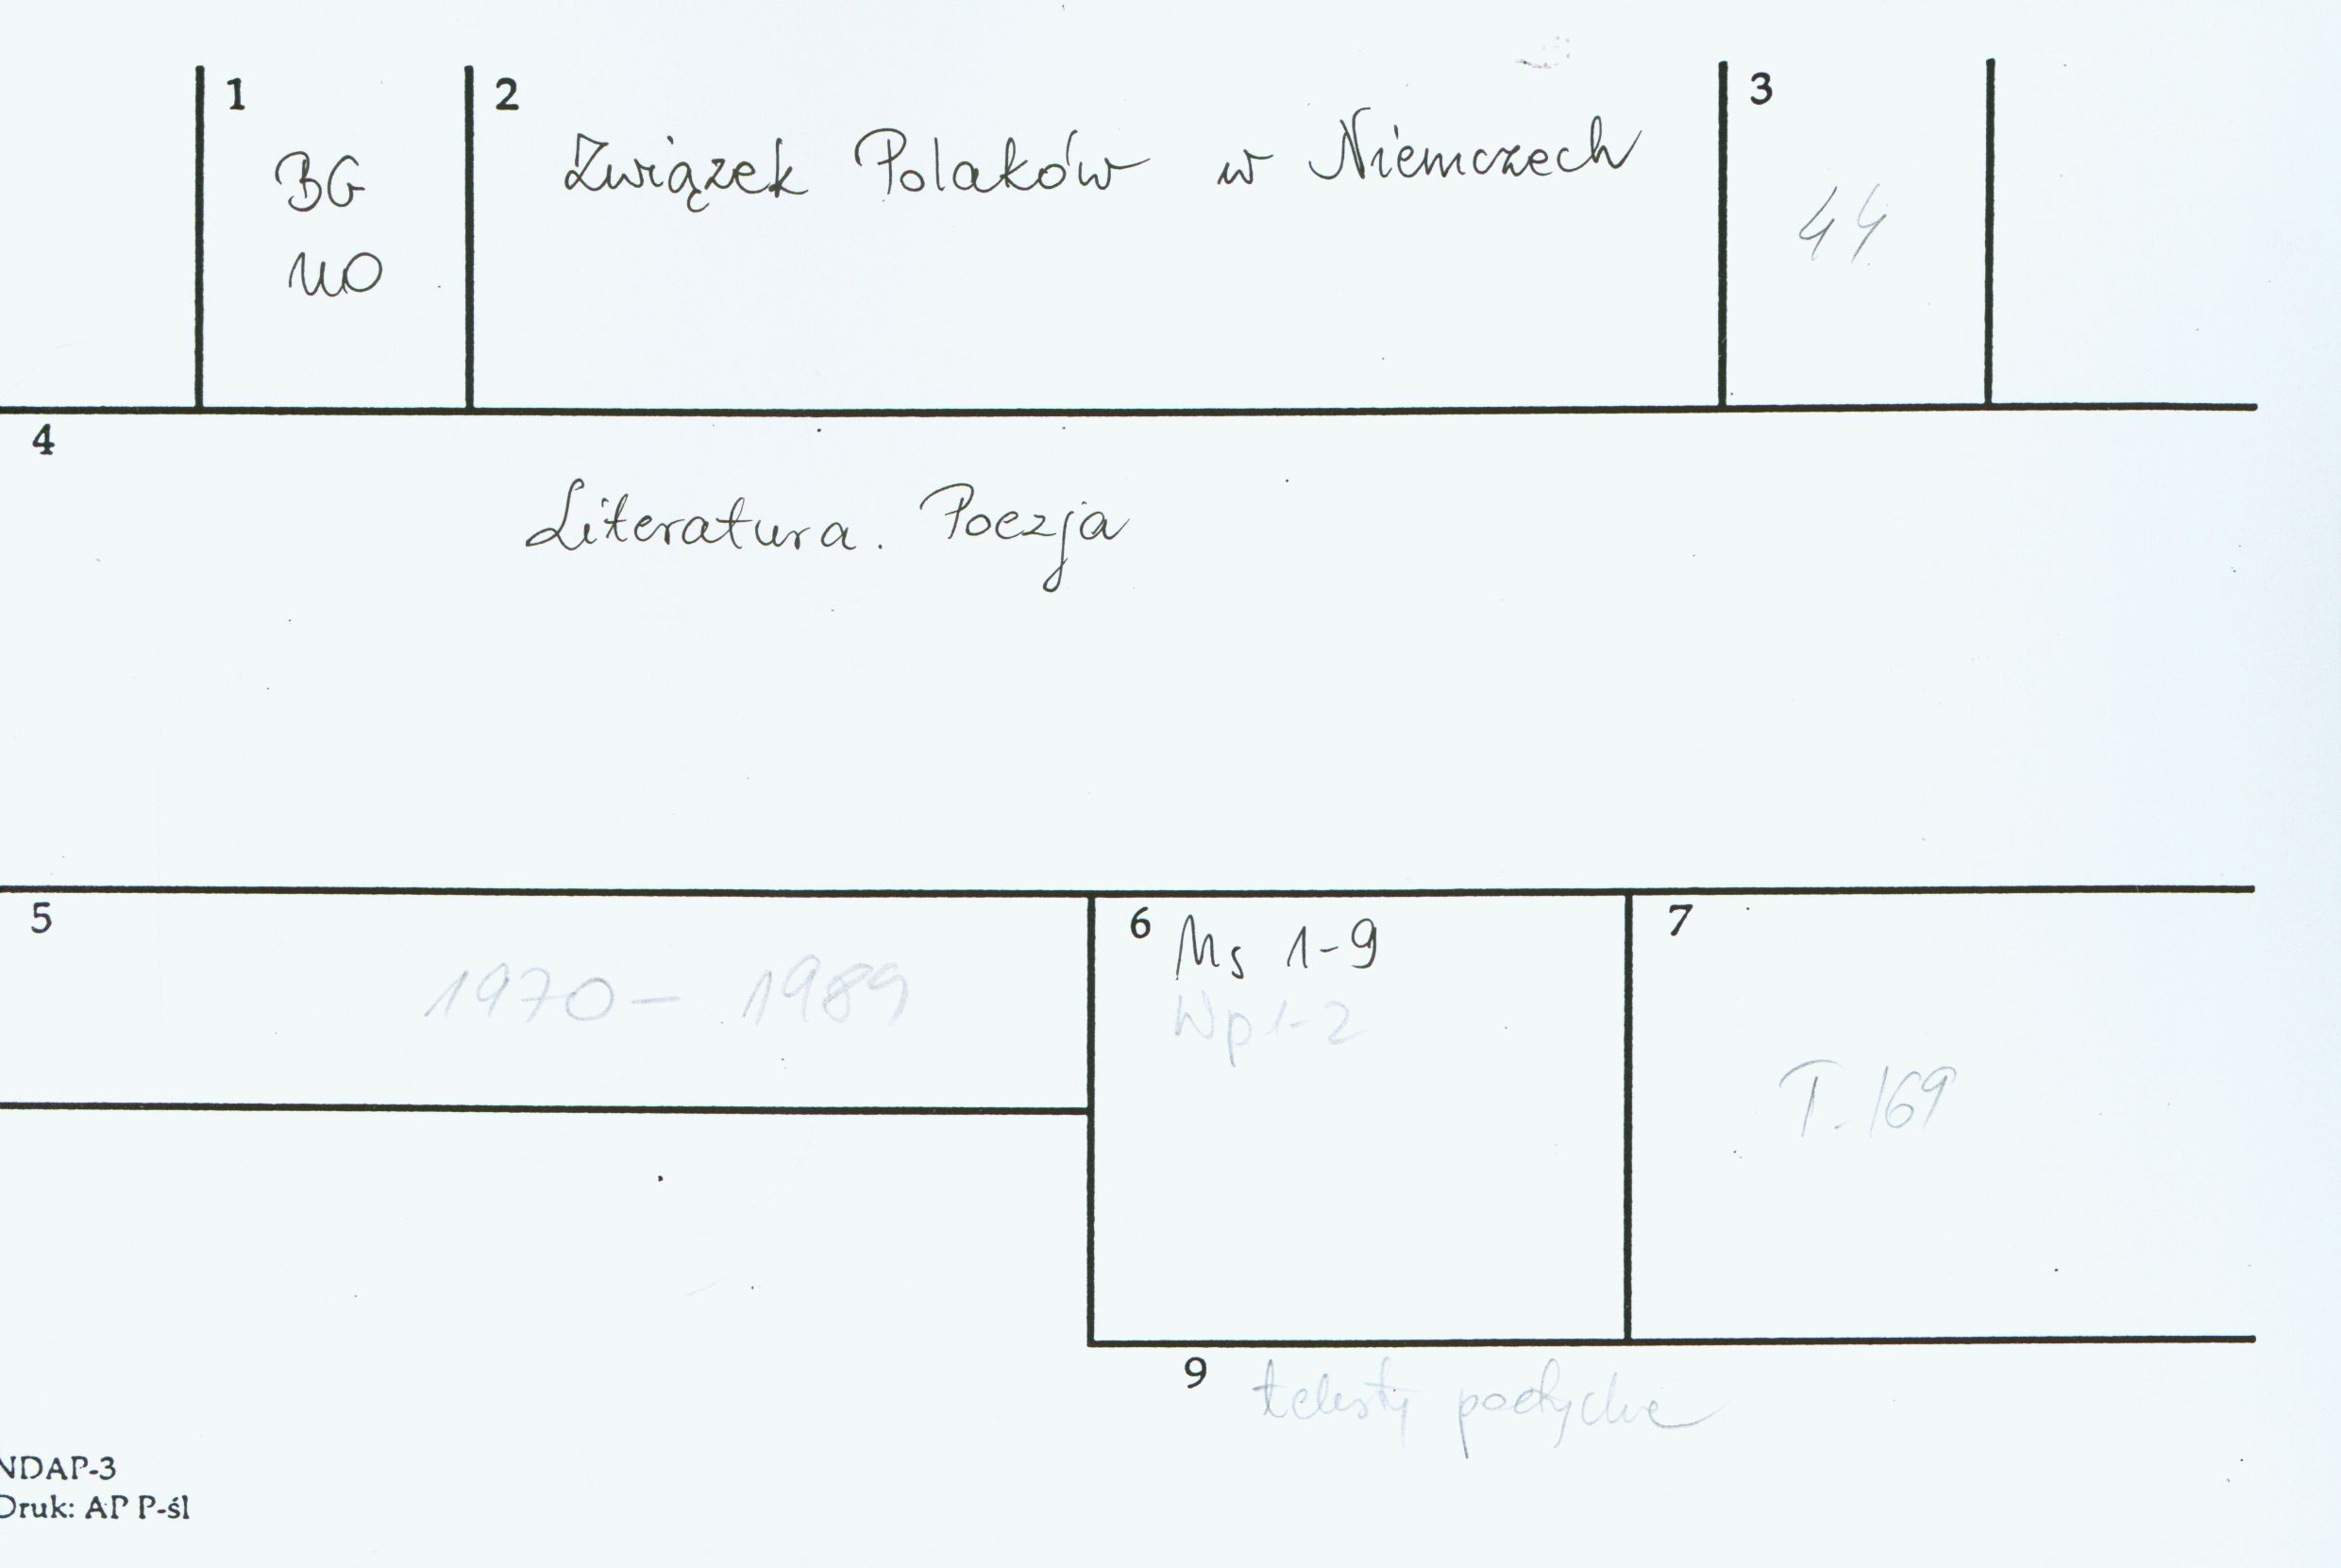 1
BG
UO
2
Związek Polaków w Niemczech
3
44
4
Literatura. Poezja
5
1970 - 1989
6 Ms 1-9
Wp 1-2
7
T. 169
9 teksty poetyckie
NDAP-3
Druk: AP P-śl